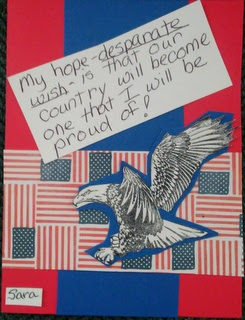 My hope - desparate
wish - is that our
country will become
one that I will be
proud of!
Sara